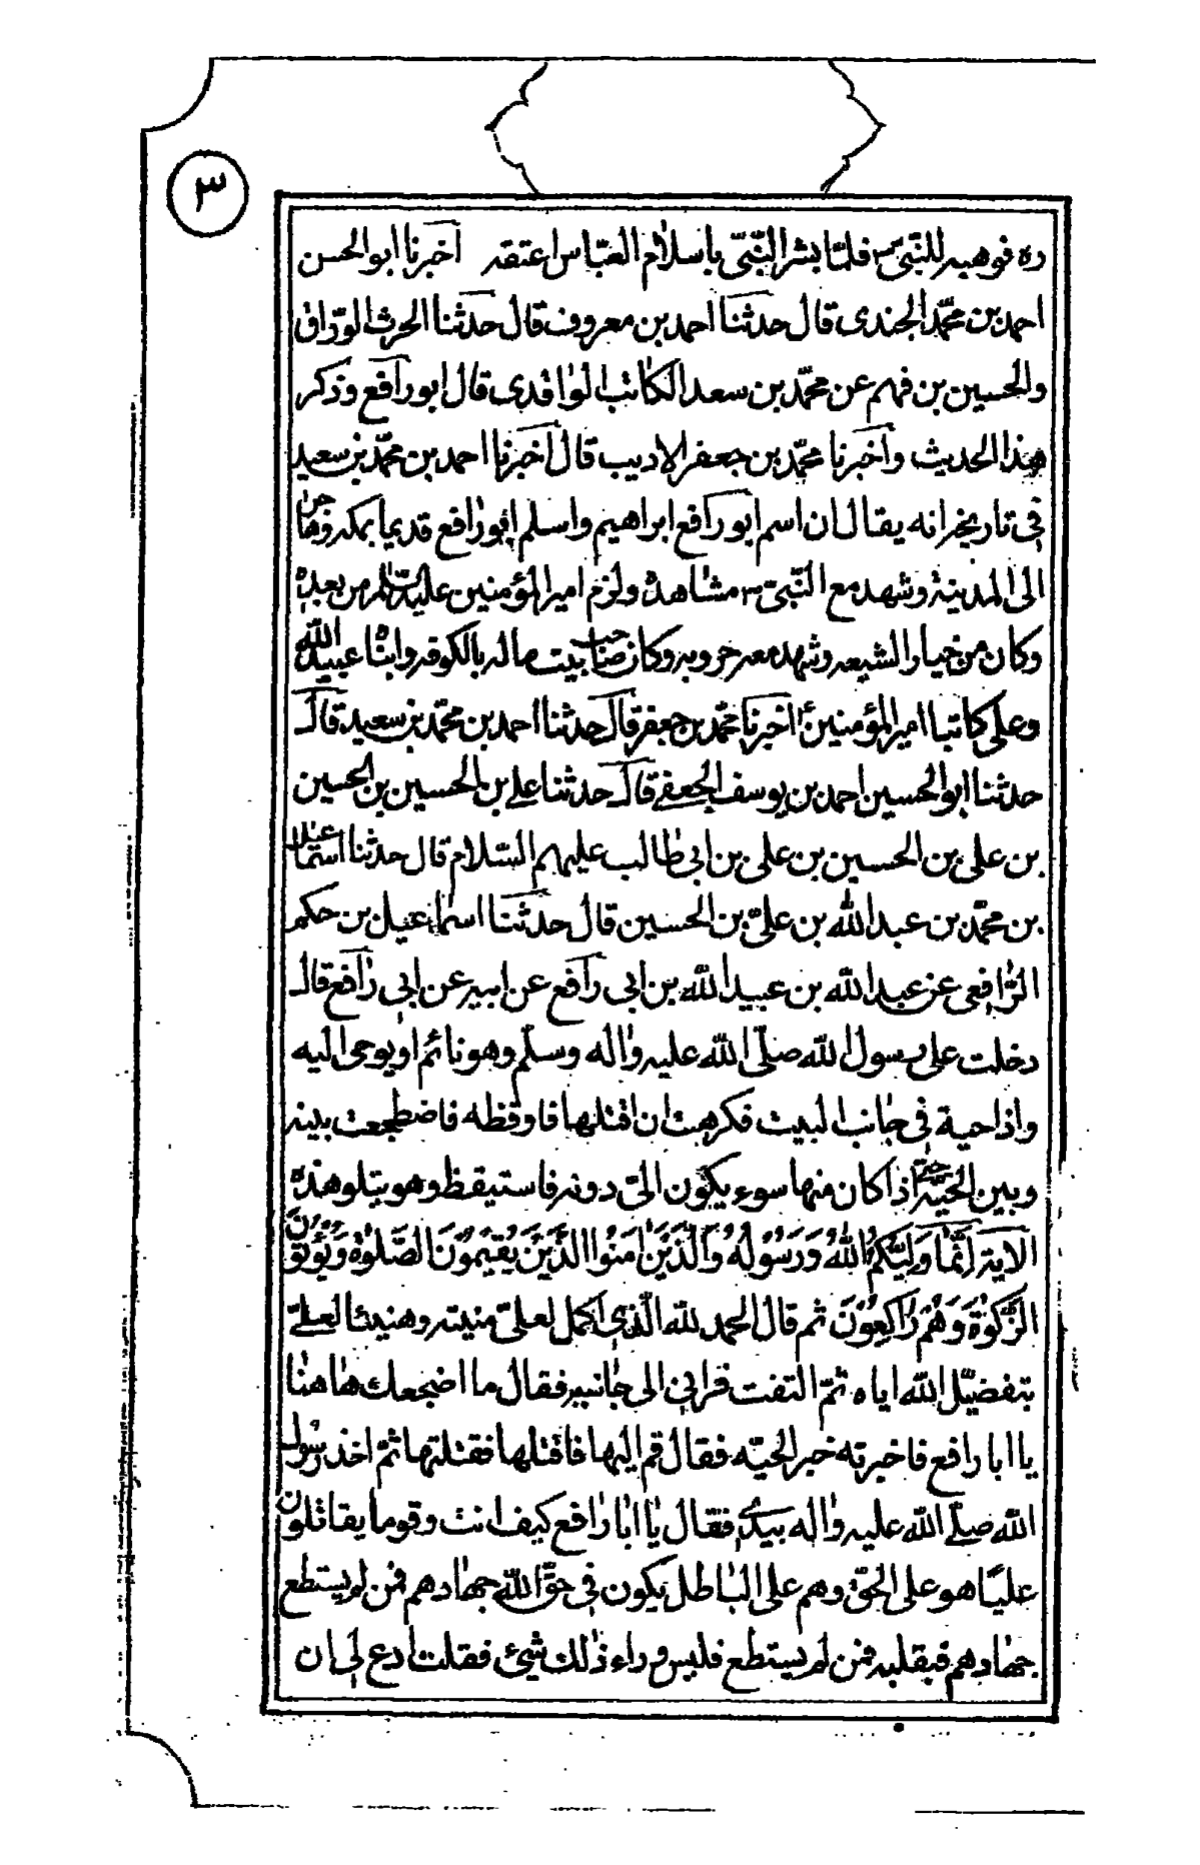 ٣
ره فوهبه للنبي ص فلما بشر النبي باسلام العباس اعتقه اخبرنا ابو الحسن
احمد بن محمد الجندى قال حدثنا احمد بن معروف قال حدثنا الحرث الوراق
والحسين بن فهم عن محمد بن سعد الكاتب الواقدى قال ابو رافع وذكر
هذا الحديث واخبرنا محمد بن جعفر الاديب قال اخبرنا احمد بن محمد بن سعيد
في تاريخه انه يقال ان اسم ابو رافع ابراهيم واسلم ابو رافع قديما بمكه وهاجر
الى المدينة وشهد مع النبي ص مشاهده ولزم امير المؤمنين عليه السلام من بعده
وكان من خيار الشيعه وشهد معه حروبه وكان صاحب بيت ماله بالكوفه وابناه عبيد الله
وعلى كاتبا امير المؤمنين ع اخبرنا محمد بن جعفر قال حدثنا احمد بن محمد بن سعيد قال
حدثنا ابو الحسين احمد بن يوسف الجعفي قال حدثنا علي بن الحسين بن الحسين
بن على بن الحسين بن على بن ابى طالب عليهم السلام قال حدثنا اسماعيل
بن محمد بن عبد الله بن علىّ بن الحسين قال حدثنا اسماعيل بن حكم
الرافعى عن عبد الله بن عبيد الله بن ابى رافع عن ابيه عن ابى رافع قال
دخلت على رسول الله صلّى الله عليه واله وسلّم وهو نائم او يوحى اليه
واذا حية في جانب البيت فكرهت ان اقتلها فاوقظه فاضطجعت بينه
وبين الحيّه حتى اذا كان منها سوء يكون الىّ دونه فاستيقظ وهو يتلو هذه
الاية اِنَّما وَلِيُّكُمُ اللهُ وَرَسُولُهُ وَالَّذينَ امَنُوا الَّذينَ يُقيمُونَ الصَّلوةَ وَيُؤتُونَ
الزَّكوةَ وَهُم رَاكِعُونَ ثم قال الحمد لله الّذى اكمل لعلىّ منيته وهنيئا لعلىّ
بتفضيل الله اياه ثمّ التفت فرانى الى جانبه فقال ما اضجعك هاهنا
يا ابا رافع فاخبرته خبر الحيّه فقال قم اليها فاقتلها فقتلتها ثمّ اخذ رسول
الله صلّى الله عليه واله بيدى فقال يا ابا رافع كيف انت وقوما يقاتلون
عليّا هو على الحقّ وهم على الباطل يكون في حقّ الله جهادهم فمن لم يستطع
جهادهم فبقلبه فمن لم يستطع فليس وراء ذلك شيئ فقلت ادع لى ان